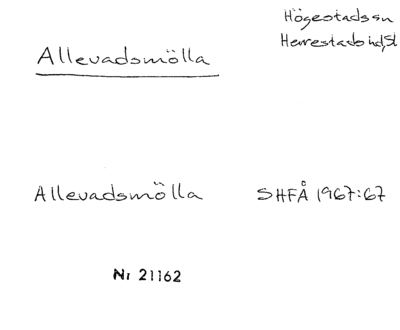 Högestads sn
Herrestads hd, Sk
Allevadsmölla
Allevadsmölla SHFÅ 1967:67
Nr 21162